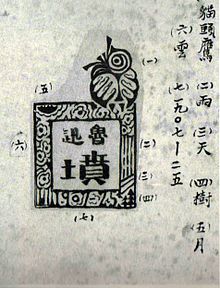 貓頭鷹 (二)雨 (三)天 (四)樹 (五)月
(六)雲 (七)一九〇七—二五
(一)
(五)
(六)
魯迅
墳
(二)
(三)
(四)
(七)